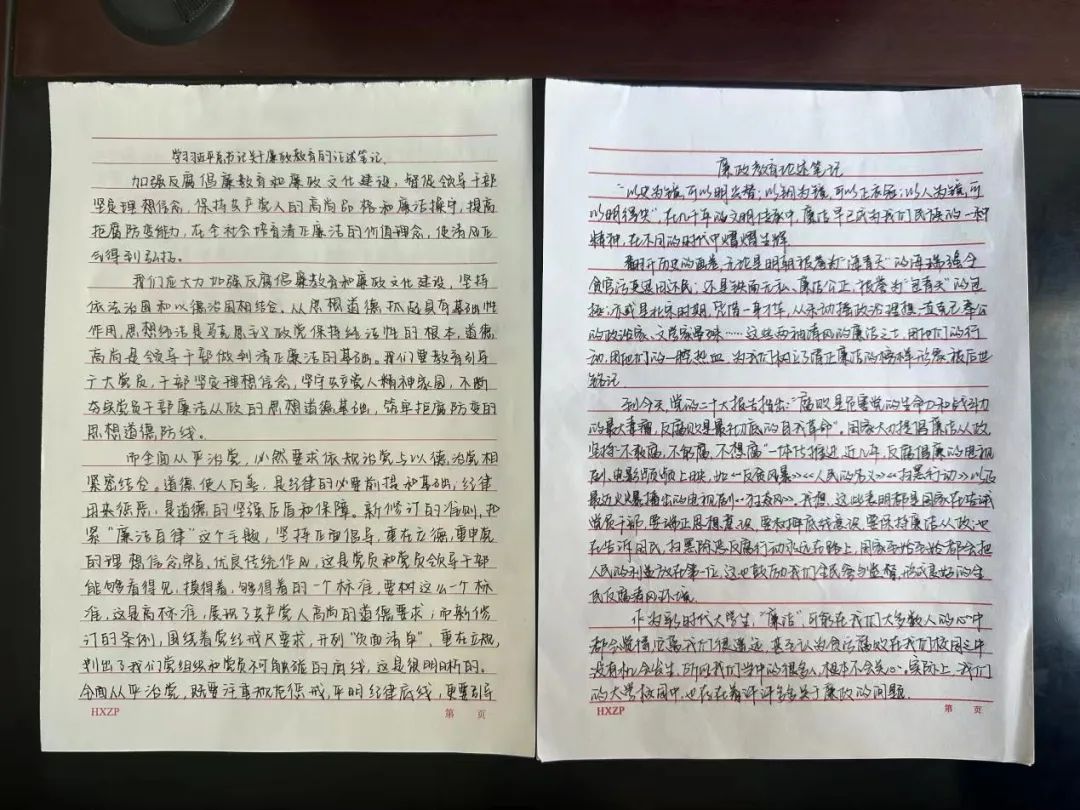 学习习近平总书记关于廉政教育的论述笔记.
加强反腐倡廉教育和廉政文化建设,督促领导干部
坚定理想信念,保持共产党人的高尚品格和廉洁操守,提高
拒腐防变能力,在全社会培育清正廉洁的价值理念,使清风正
气得到弘扬。
我们应大力加强反腐倡廉教育和廉政文化建设,坚持
依法治国和以德治国相结合。从思想道德抓起具有基础性
作用,思想纯洁是马克思主义政党保持纯洁性的根本,道德
高尚是领导干部做到清正廉洁的基础。我们要教育引导
广大党员,干部坚定理想信念,坚守共产党人精神家园,不断
夯实党员干部廉洁从政的思想道德基础,筑牢拒腐防变的
思想道德防线。
而全面从严治党,必然要求依规治党与以德治党相
紧密结合。道德使人向善,是纪律的必要前提和基础,纪律
用来惩恶,是道德的坚强后盾和保障。新修订的准则,把
紧“廉洁自律”这个主题,坚持正面倡导,重在立德,重申党
的理想信念宗旨,优良传统作风,这是党员和党员领导干部
能够看得见,摸得着,够得着的一个标准,要树这么一个标
准,这是高标准,展现了共产党人高尚的道德要求;而新修
订的条例,围绕着党纪戒尺要求,开列“负面清单”,重在立规,
划出了我们党组织和党员不可触碰的底线,这是很明晰的。
全面从严治党,既要注重规范惩戒,严明纪律底线,更要引导
HXZP 第 页
廉政教育论述笔记
“以史为镜,可以明兴替;以铜为镜,可以正衣冠;以人为镜,可
以明得失”,在几千年的文明传承中,廉洁早已成为我们民族的一种
精神,在不同的时代中熠熠生辉
翻开历史的画卷,无论是明朝被誉为“海青天”的海瑞强令
贪官污吏退田还民;还是铁面无私、廉洁公正,被誉为“包青天”的包
拯;亦或是北宋时期,凭借一身才华,从未动摇政治理想,一直克己奉公
的政治家、文学家
这些两袖清风的廉洁之士,用他们的行
动,用他们的一腔热血,为我们树立了清正廉洁的榜样,
被后世
铭记
到今天,党的二十大报告指出:“腐败是危害党的生命力和战斗力
的最大毒瘤,反腐败是最彻底的自我革命”。国家大力提倡廉洁从政,
坚持不敢腐、不能腐、不想腐”一体推进 近几年,反腐倡廉的电视
剧、电影频频上映,如<<反贪风暴>><<人民的名义>><<扫黑行动>>以及
最近火爆播出的电视剧<<狂飙>>。我想,这些表明都是国家在告诫
党员干部,要端正思想意识,要树牢底线意识,要保持廉洁从政;也
在告诉国民,扫黑除恶反腐行动永远在路上,国家
始终都会把
人民的利益放在第一位,这也鼓励我们全民参与监督,形成良好的全
民反腐清风环境.
作为新时代大学生,“廉洁”可能在我们大多数人的心中
都会觉得距离我们很遥远,甚至认为贪污腐败在我们校园之中
没有机会发生,所以我们学中的很多人根本不会关心。实际上,我们
的大学校园中,也存在着许许多多关于廉政的问题.
HXZP 第 页